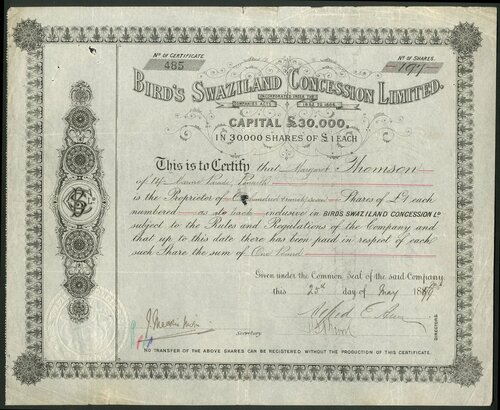 Nº OF CERTIFICATE
485
Nº OF SHARES.
197
BIRD'S SWAZILAND CONCESSION LIMITED.
INCORPORATED UNDER THE
COMPANIES ACTS 1862 TO 1886
CAPITAL £30,000,
IN 30,000 SHARES OF £1 EACH
This is to Certify that Margaret Thomson
of Parade, Penrith
is the Proprietor of One hundred & ninety seven Shares of £1 each
numbered as at back inclusive in BIRD'S SWAZILAND CONCESSION Lᴅ
subject to the Rules and Regulations of the Company and
that up to this date there has been paid in respect of each
such Share the sum of One Pound
Given under the Common Seal of the said Company
this 25th day of May 188
Alfred E.
Secretary
DIRECTORS
NO TRANSFER OF THE ABOVE SHARES CAN BE REGISTERED WITHOUT THE PRODUCTION OF THIS CERTIFICATE.